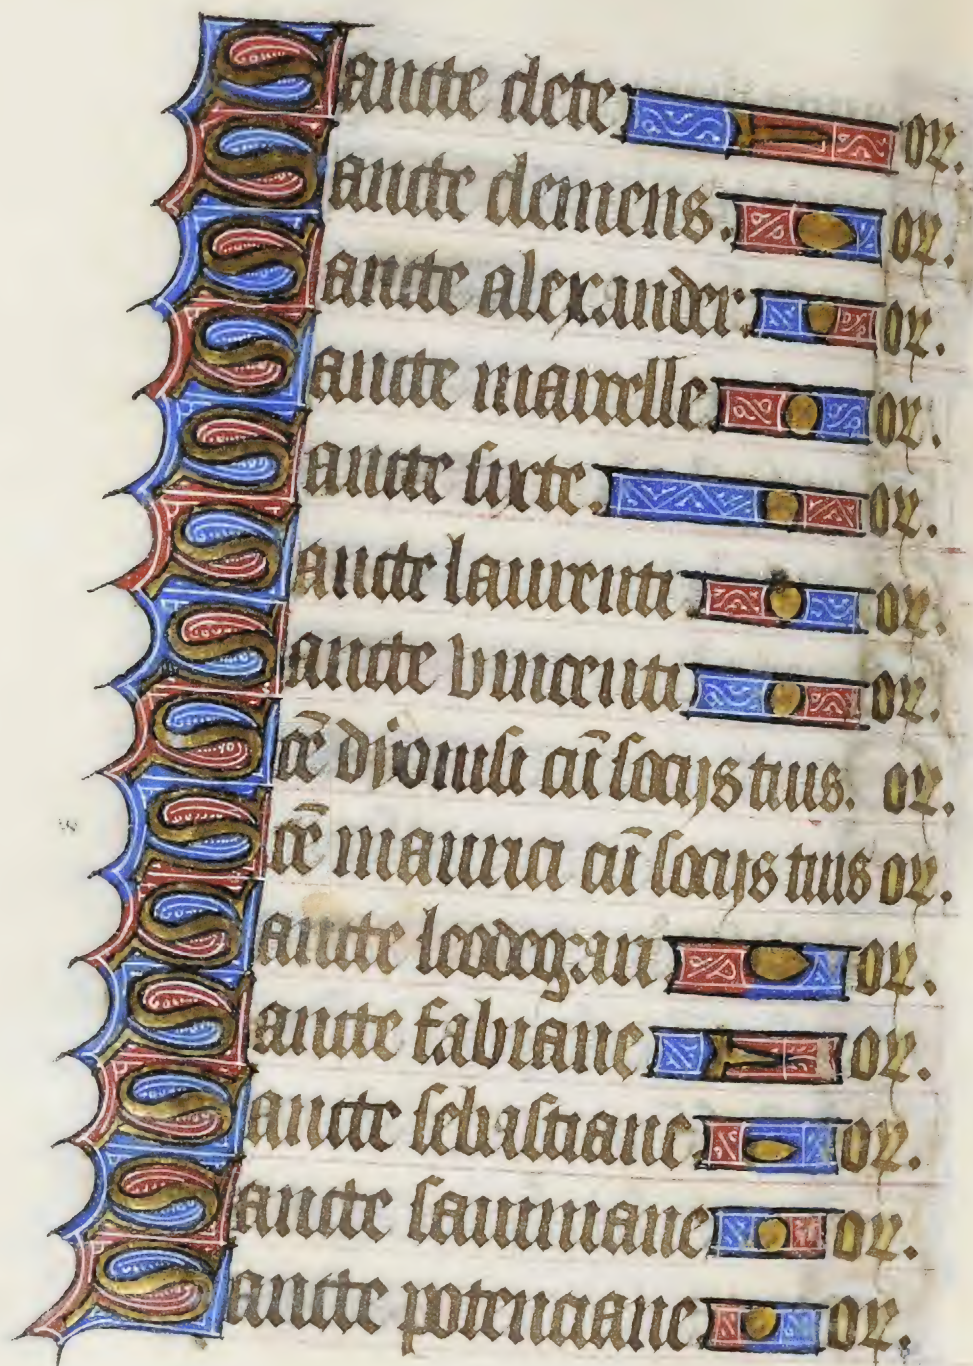 Sancte clete or.
Sancte clemens. or.
Sancte alexander. or.
Sancte marcelle or.
Sancte sixte. or.
Sancte laurenti or.
Sancte vincenti or.
Scē dyonisi cū socijs tuis. or.
Scē maurici cū socijs tuis or.
Sancte leodegari or.
Sancte fabiane or.
Sancte sebastiane or.
Sancte sauiniane or.
Sancte potenciane or.